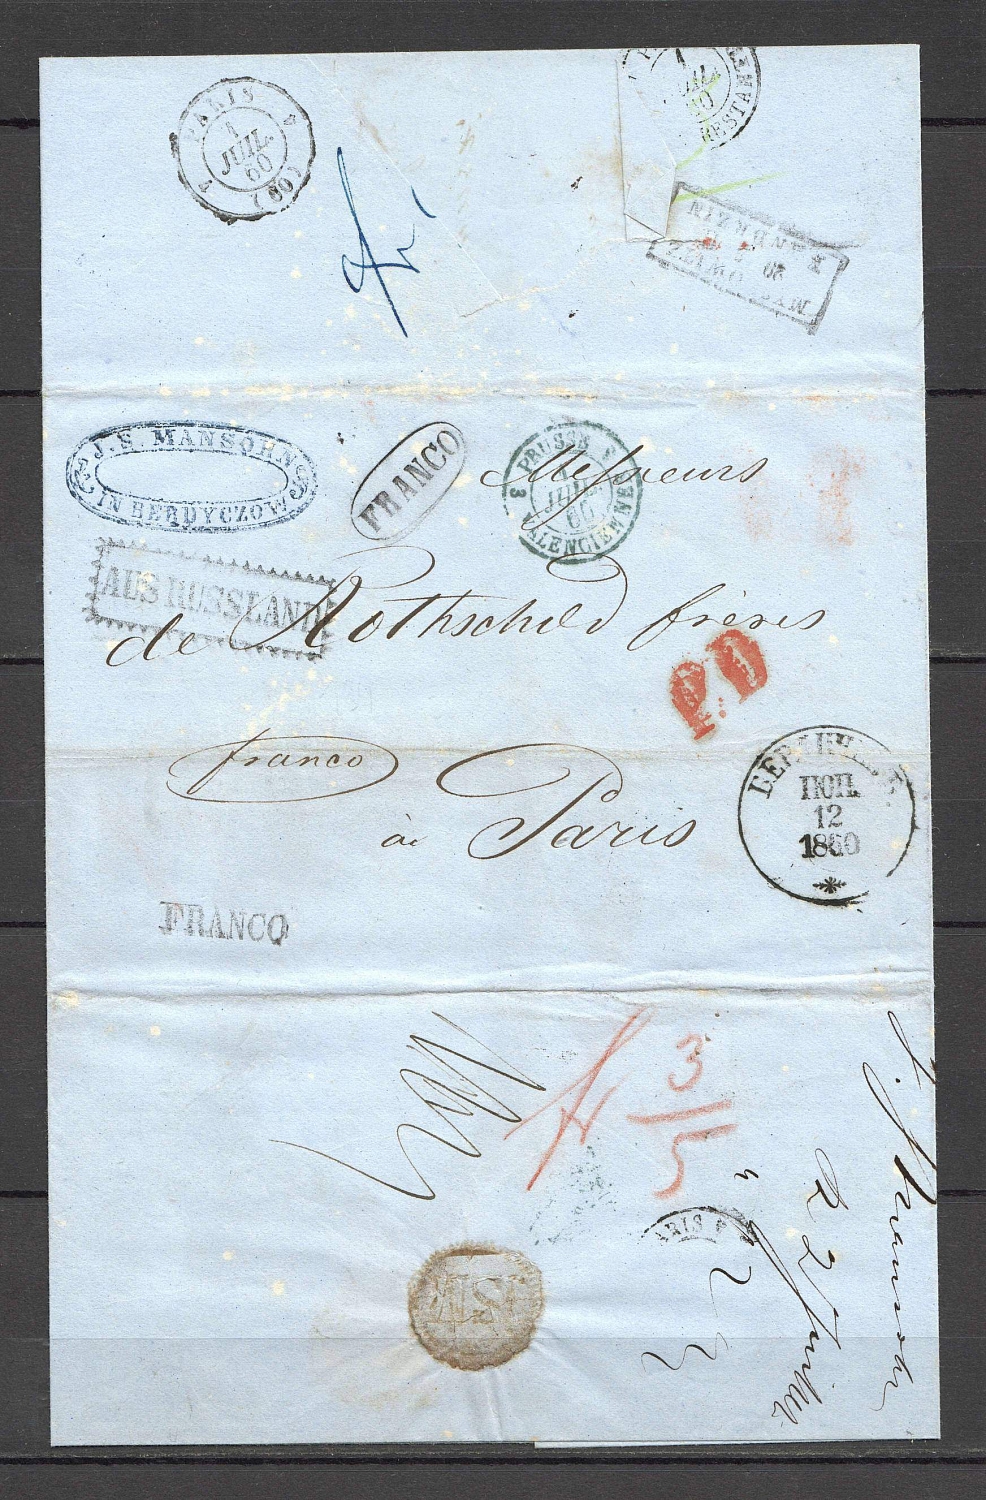 PARIS
1
JUIL.
60
(60)
1
60
RESTANTE
MYSLOWITZ
20
KANDRZIN
J. S. MANSOHN
IN BERDYCZOW
FRANCO
PRUSSE
3
JUIL.
60
VALENCIENNES
Messieurs
AUS RUSSLAND
de Rothschild frères
P.D
franco
à Paris
БЕРДИЧЕВЪ
ПОЛ.
12
1860
FRANCO
3
5
PARIS
J. Mansohn
22 Juillet